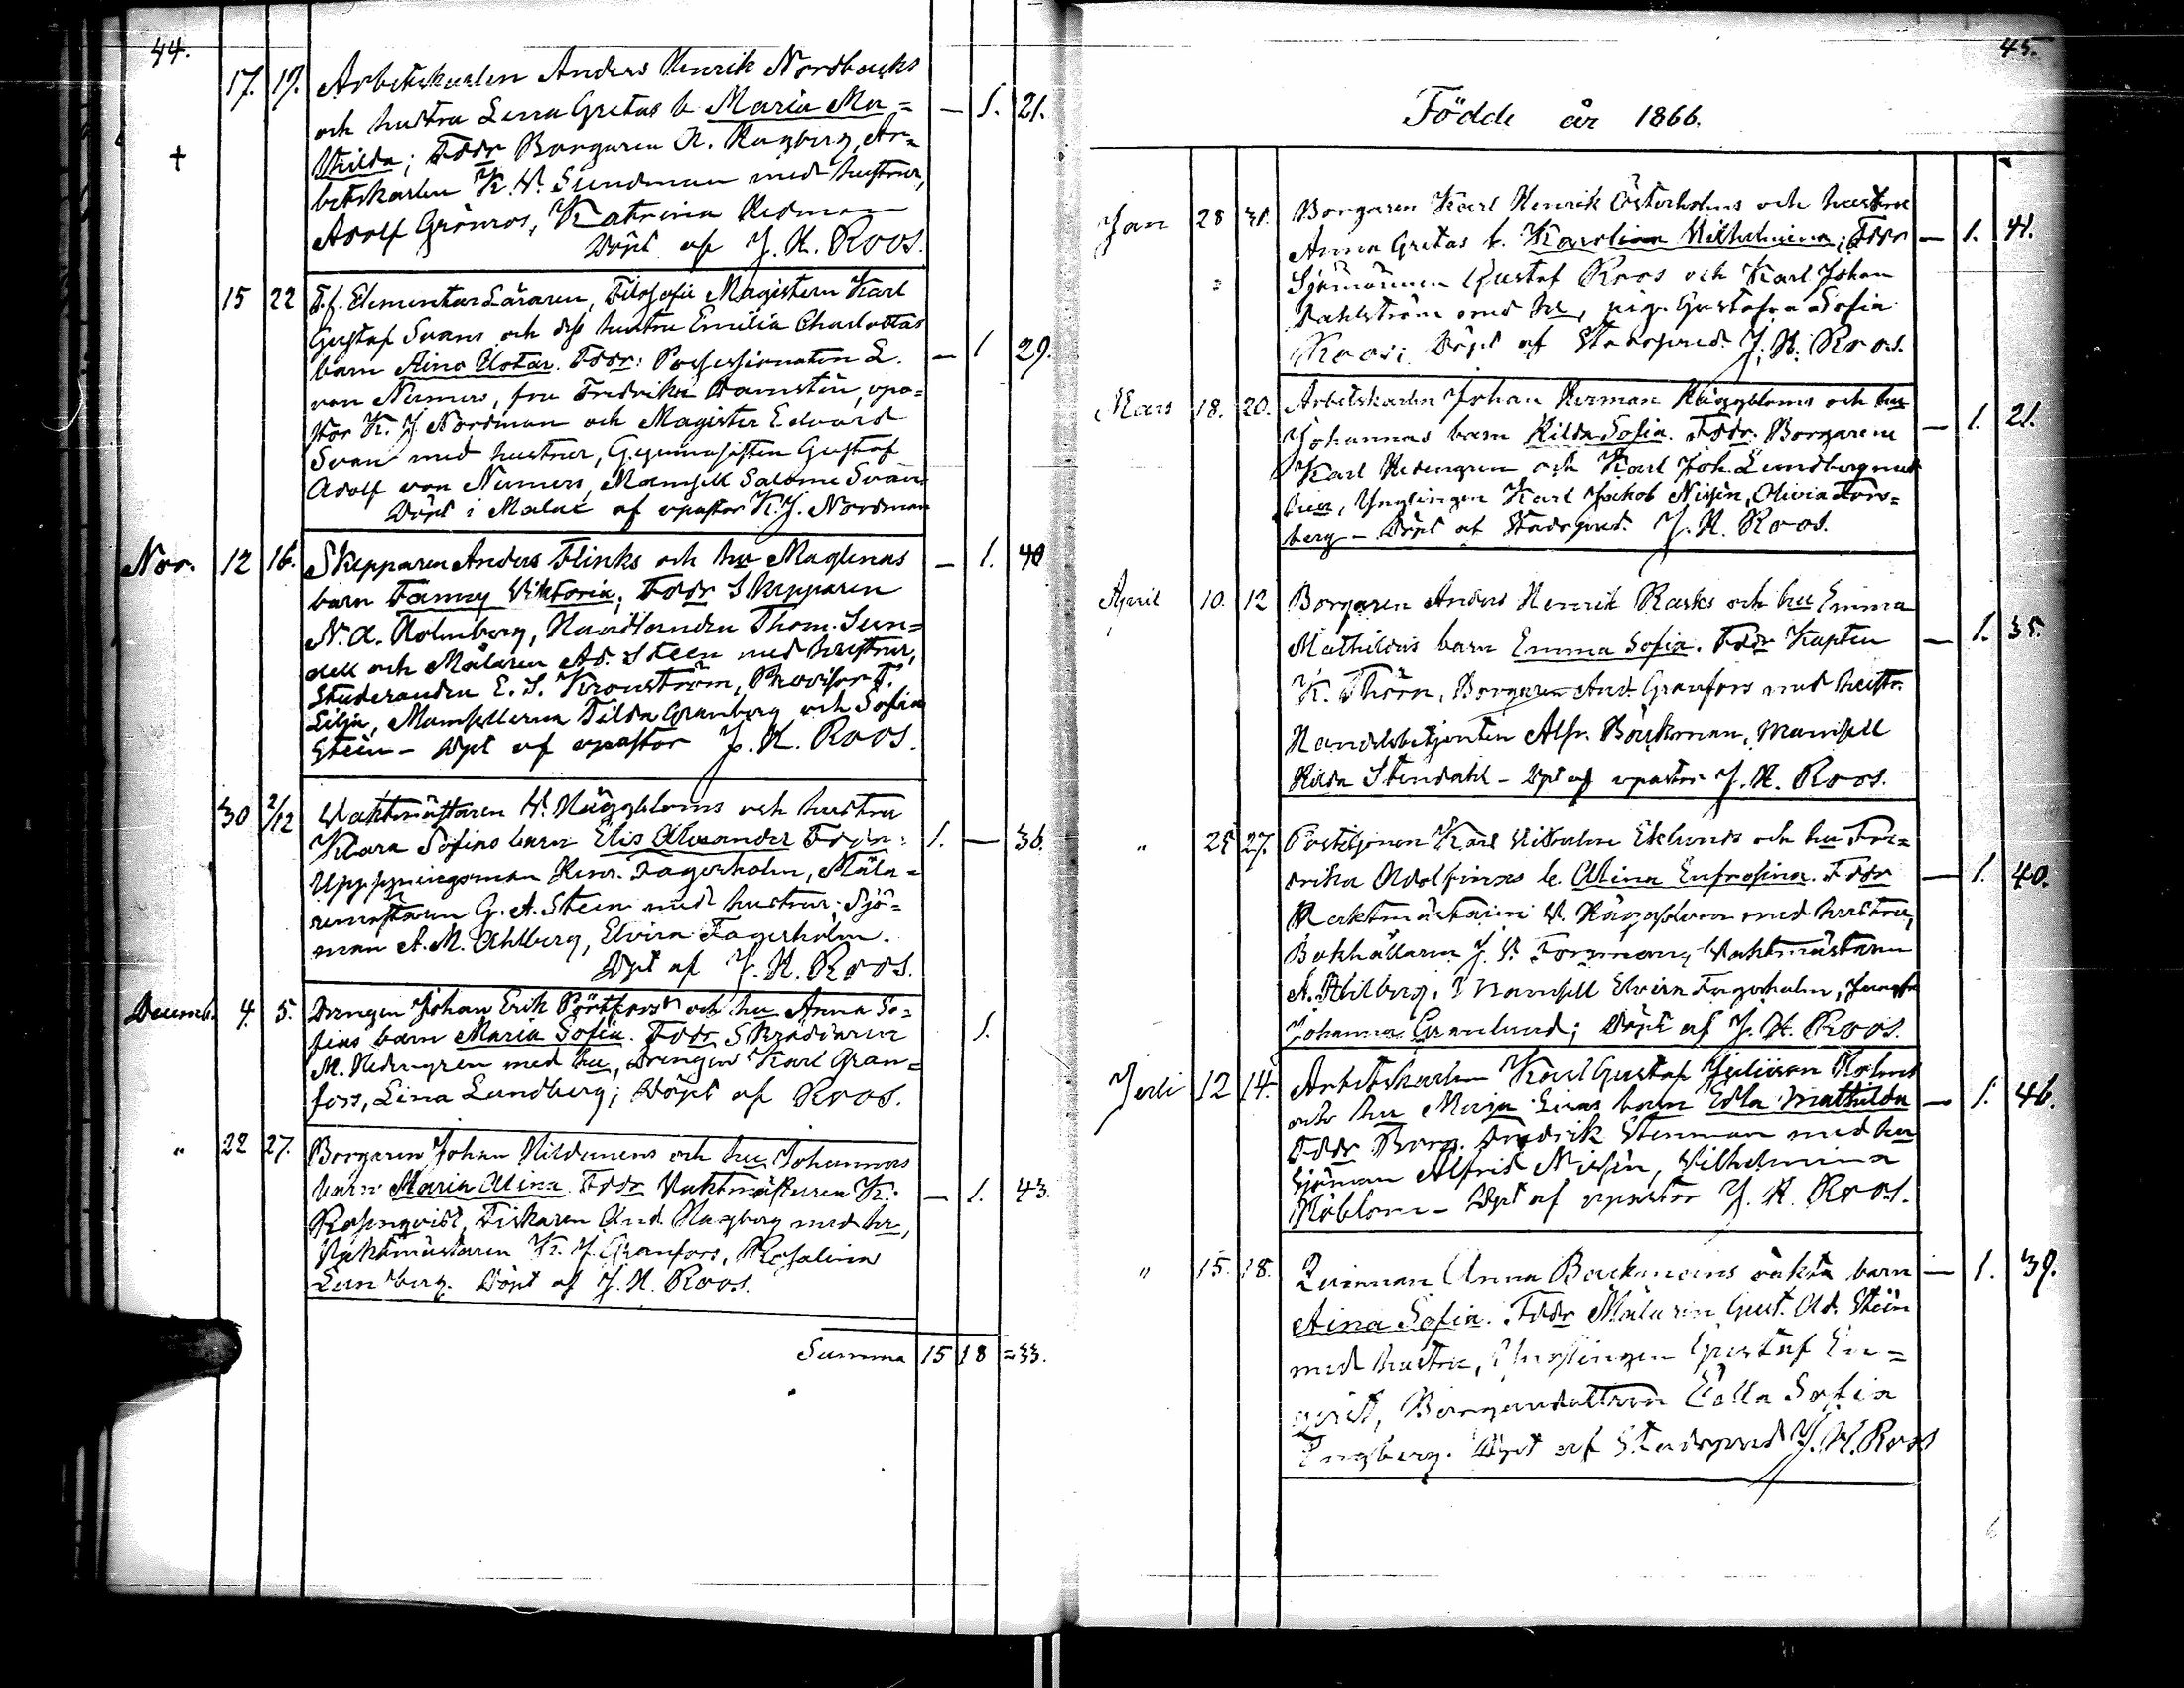 44.
17. 19. Arbetskarlen Anders Henrik Nordbacks
och hustru Lena Gretas b. Maria Ma= — 1. 21.
thilda; Fddr Borgaren A. Hagberg, Ar=
+
betskarlen K. W. Sundman med hustrur,
Adolf Grönros, Katrina Hedman
Döpt af J. H. Roos.
15 22 T.f. Elementar Läraren, Filosofie Magistern Karl
Gustaf Svans och dess hustru Emilia Charlottas
barn Aino Ilotar. Fddr: Possessionaten L. — 1 29.
von Numers, fru Fredrika Damstén, vpa=
stor K. J. Nordman och Magister Edvard
Svan med hustrur, Gymnasisten Gustaf
Adolf von Numers, Mamsell Salome Svan.
Döpt i Malax af vpastor K. J. Nordman
Nov. 12 16. Skepparen Anders Flinks och hu Maglenas — 1. 40
barn Fanny Viktoria; Fddr Skepparen
N. A. Holmberg, Handlanden Thom. Sun=
dell och Målaren Ad. Steen med hustrur,
Studeranden E. S. Kronström, Provisor T.
Lilja, Mamsellerna Tilda Granberg och Sofia
Steen — Dpt af vpastor J. H. Roos.
30 2/12 Vaktmästaren W. Häggbloms och hustru
Klara Sofias barn Elis Alexander Fddr: 1. — 36.
Uppsyningsman Henr. Fagerholm, Måla=
remästaren G. A. Steen med hustrur; Sjö=
man A. M. Ahlberg, Elvira Fagerholm.
Dpt af J. H. Roos.
Decemb. 4. 5. Drengen Johan Erik Pörtfors och hu Anna So=
fias barn Maria Sofia. Fddr Skräddaren 1.
M. Hedengren med hu, Drengen Karl Gran=
fors, Lina Lundberg; Döpt af Roos.
" 22 27. Borgaren Johan Hildemens och hu Johannas
barn Maria Alina. Fddr Vaktmästaren K. — 1. 43.
Rosenqvist, Fiskaren And. Hagberg med hr,
Vaktmästaren K. J. Granfors, Rosalina
Lundberg. Döpt af J. H. Roos.
Summa 15 18 =33.
45.
Födde år 1866.
Jan 28 31. Borgaren Karl Henrik Österholms och hustru
Anna Gretas b. Karolina Vilhelmina; Fddr — 1. 41.
Sjömännen Gustaf Roos och Karl Johan
Dahlström med hr, pig. Gustafva Sofia
Roos; Döpt af Stadspred. J. H. Roos.
Mars 18. 20. Arbetskarlen Johan Herman Häggbloms och hu
Johannas barn Hilda Sofia. Fddr. Borgarene — 1. 21.
Karl Hedengren och Karl Joh. Lundberg med
hur, Ynglingen Karl Jakob Nissén, Olivia Fors=
berg — Döpt af Stadspred. J. H. Roos.
April 10. 12 Borgaren Anders Henrik Rasks och hu Emma
Mathildas barn Emma Sofia. Fddr Kapten — 1. 35.
K. Thörn, Borgaren And. Granfors med hustr.
Handelsbetjenten Alfr. Böckman, Mamsell
Hilda Stendahl — Dpt af vpastor J. H. Roos.
" 25 27. Postiljonen Karl Vilhelm Eklunds och hu Fre=
drika Adolfinas b. Alina Eufrosina. Fddr — 1. 40.
Vaktmästaren W. Häggblom med hustru,
Bokhållaren J. W. Forsman, Vaktmästaren
A. Ahlberg, Mamsell Elvira Fagerholm, Jungfr
Johanna Granlund; Döpt af J. H. Roos.
Juli 12 14. Arbetskarlen Karl Gustaf Juliuson Holms
och hu Maja Lisas barn Edla Mathilda — 1. 46.
Fddr Borg. Fredrik Stenman med hu
Sjöman Alfrid Nissén, Vilhelmina
Sjöblom — Dpt af vpastor J. H. Roos.
" 15. 18. Qvinnan Anna Backmans oäkta barn — 1. 39.
Aina Sofia. Fddr Målaren Gust. Ad. Steen
med hustru, Ynglingen Gustaf En=
qvist, Borgaredottren Edla Sofia
Engberg. Dpt af Stadspred J. H. Roos